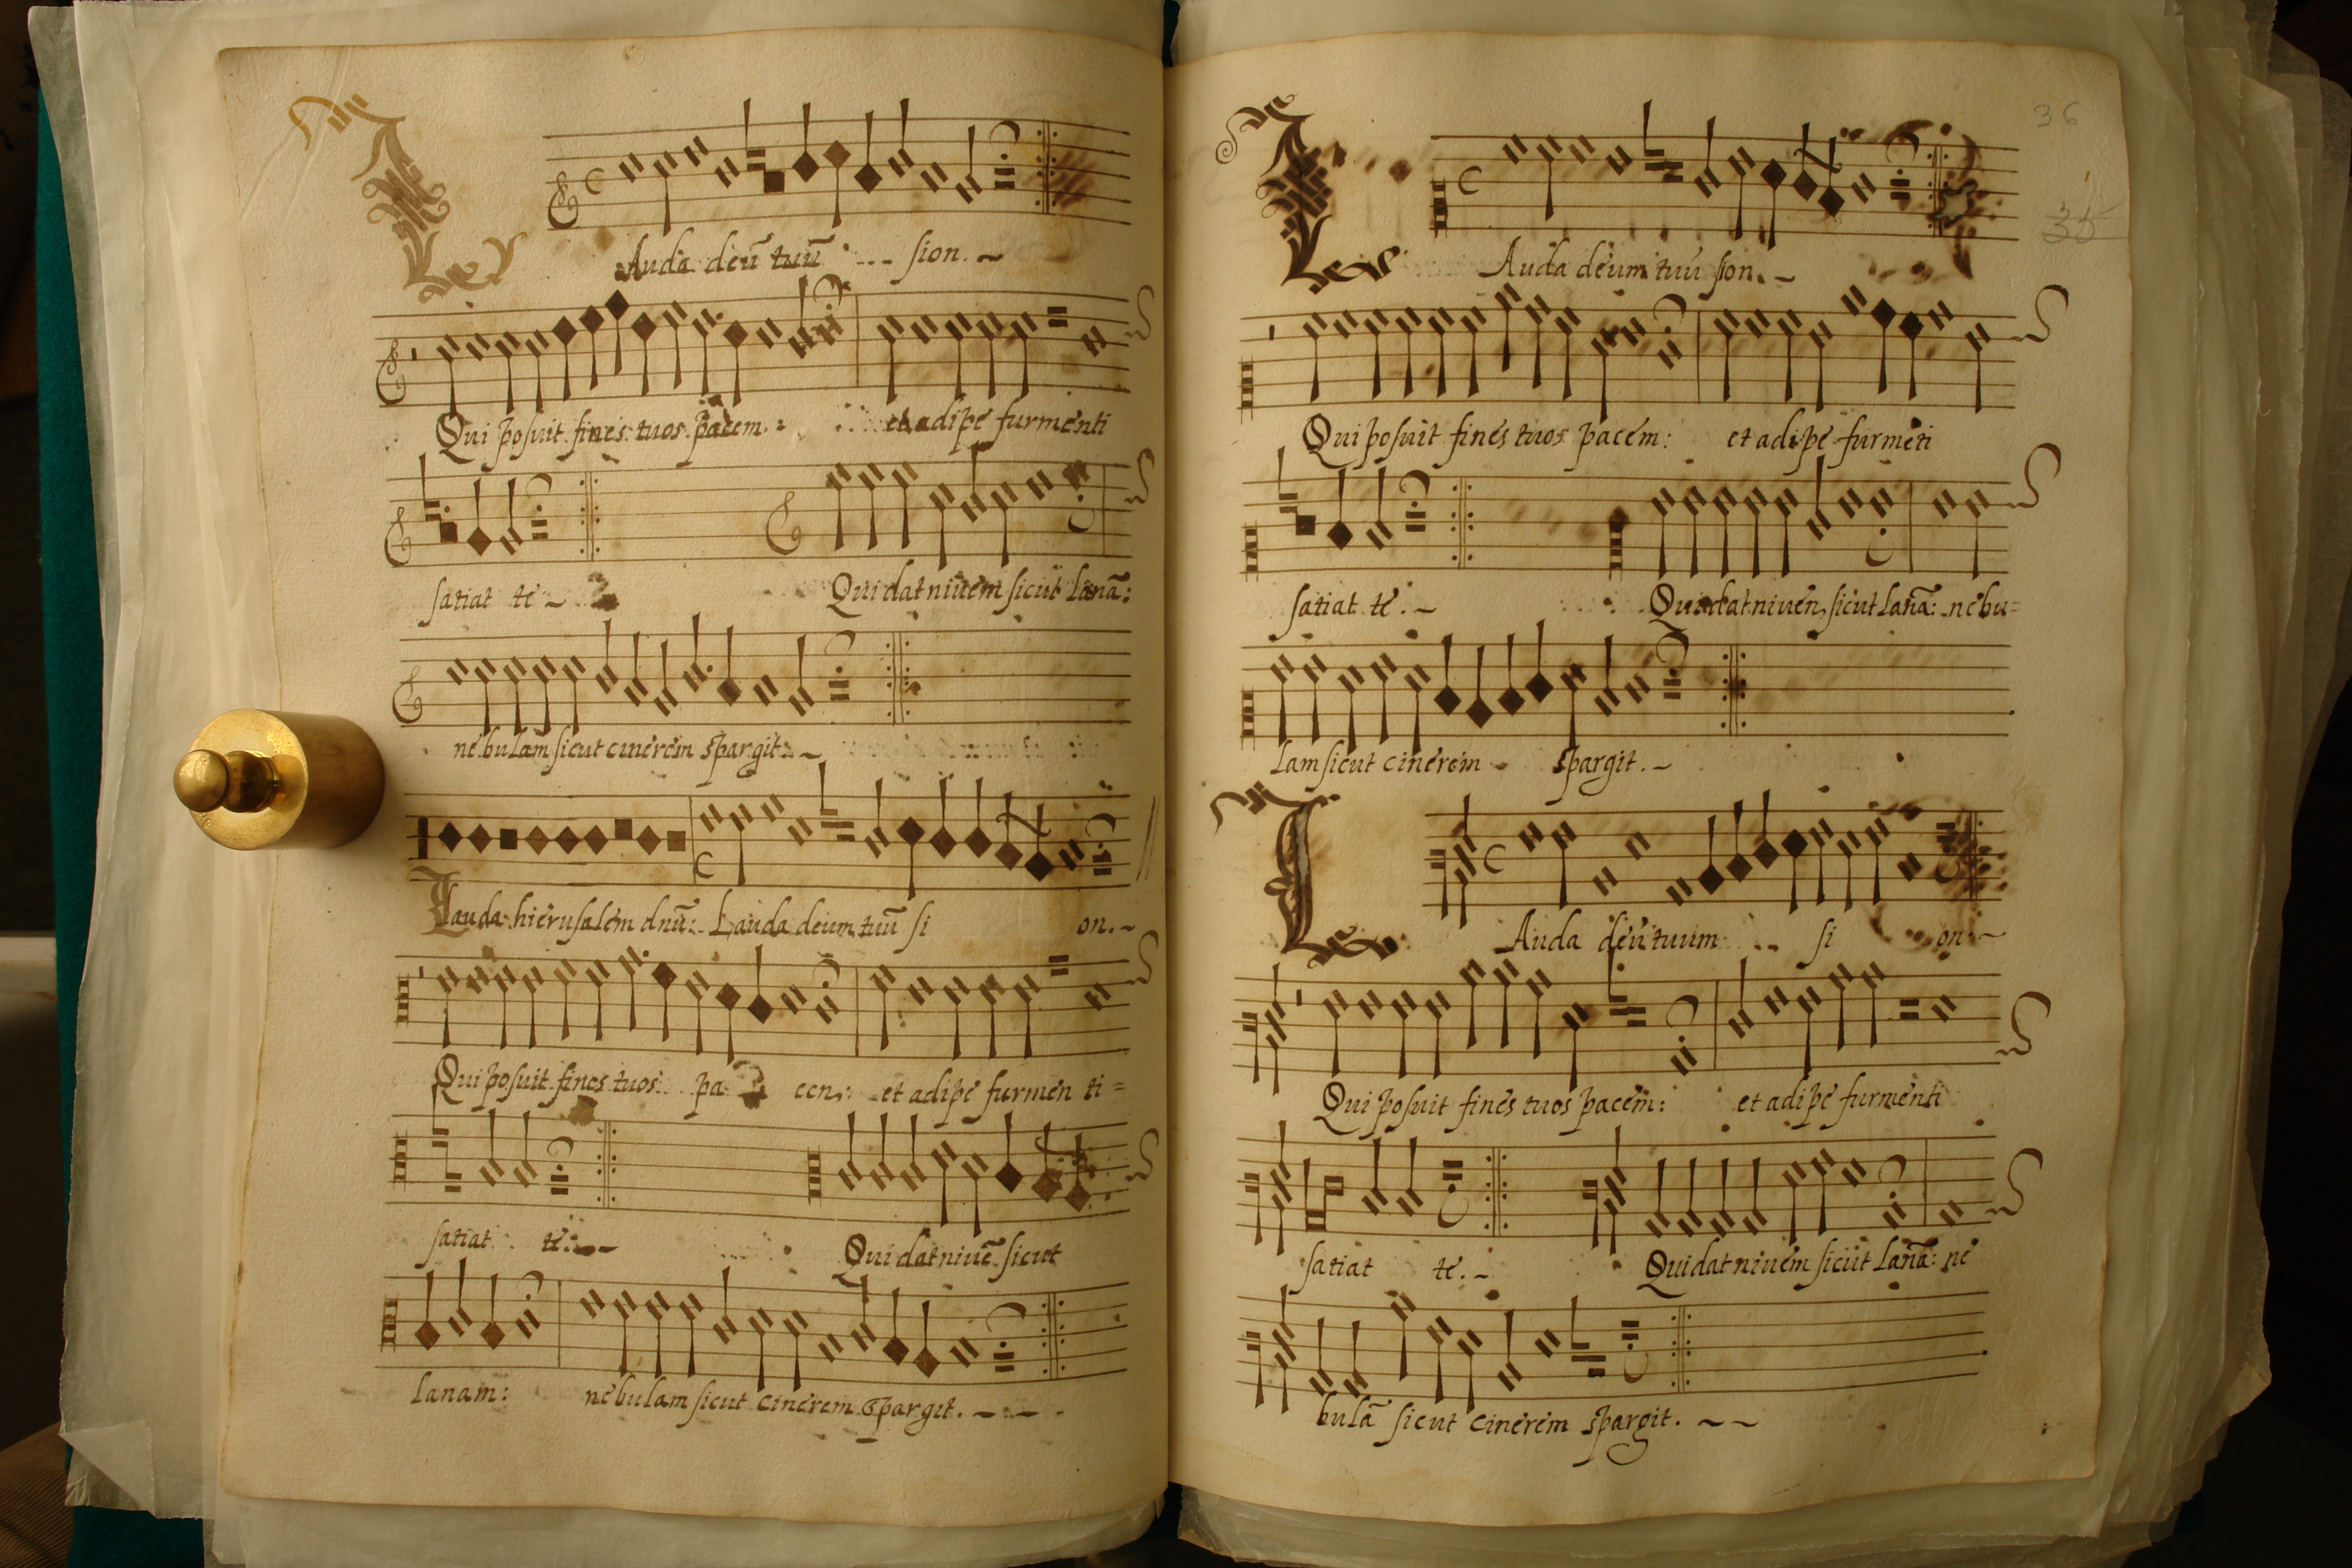 Lauda deū tuū sion.
Qui posuit fines tuos pacem: et adipe furmenti
satiat te Qui dat niuem sicut lanā:
nebulam sicut cinerem spargit.
Lauda hierusalem dnū: Lauda deum tuū si on.
Qui posuit fines tuos pa cen: et adipe furmen ti=
satiat te. Qui dat niuē sicut
lanam: nebulam sicut cinerem spargit.
36
35
Lauda deum tuū sion.
Qui posuit fines tuos pacem: et adipe furmēti
satiat te. Qui dat niuen sicut lanā: nebu=
lam sicut cinerem spargit.
Lauda deū tuum si on.
Qui posuit fines tuos pacem: et adipe furmenti
satiat te. Qui dat niuem sicut lanā: ne
bulā sicut cinerem spargit.